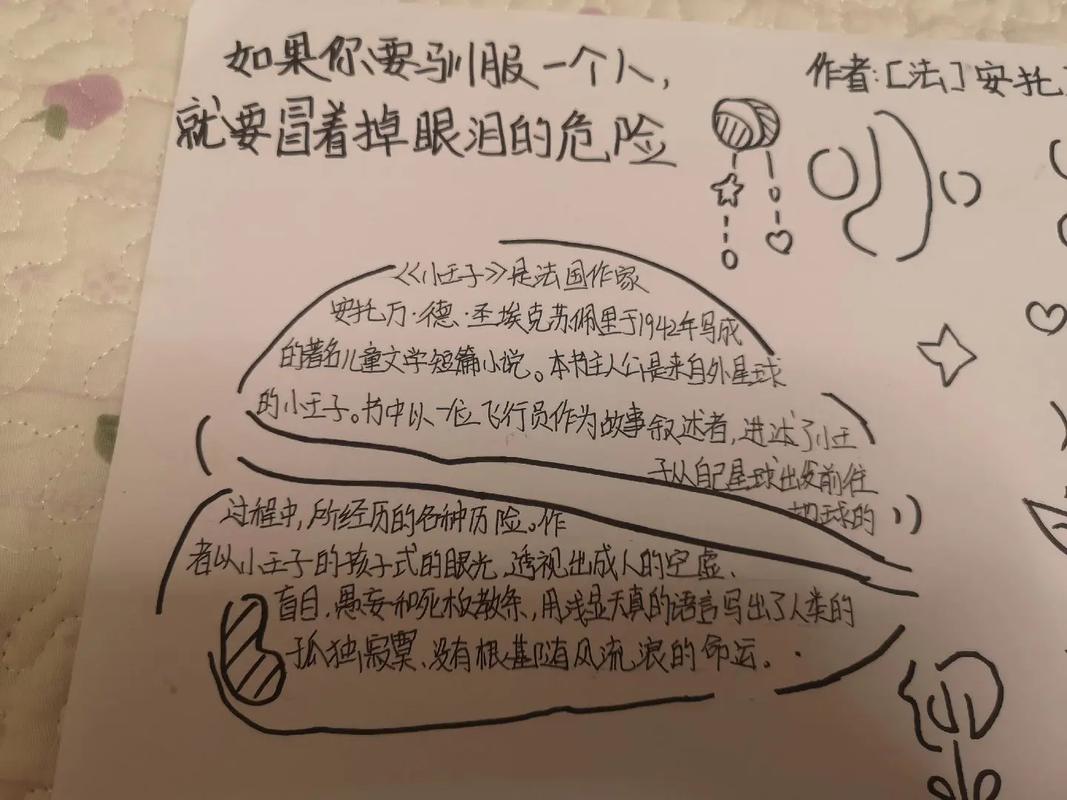 如果你要驯服一个人，
就要冒着掉眼泪的危险
作者：[法]安托
《小王子》是法国作家
安托万·德·圣埃克苏佩里于1942年写成
的著名儿童文学短篇小说。本书主人公是来自外星球
的小王子。书中以一位飞行员作为故事叙述者，进述了小王
子从自己星球出发前往
地球的
过程中，所经历的各种历险。作
者以小王子的孩子式的眼光，透视出成人的空虚、
盲目，愚妄和死板教条，用浅显天真的语言写出了人类的
孤独寂寞、没有根基随风流浪的命运。